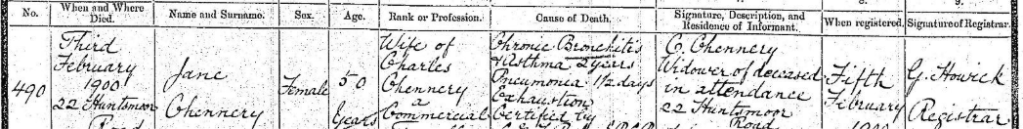 No. When and Where Died. Name and Surname. Sex. Age. Rank or Profession. Cause of Death. Signature, Description, and Residence of Informant. When registered. Signature of Registrar.
490
Third
February
1900
22 Huntsmoor
Road
Jane
Chennery
Female
50
Years
Wife of
Charles
Chennery
a
Commercial
Chronic Bronchitis
& Asthma 2 years
Pneumonia 1½ days
Exhaustion
Certified by
C. Chennery
Widower of deceased
in attendance
22 Huntsmoor
Road
Fifth
February
1900
G. Howick
Registrar